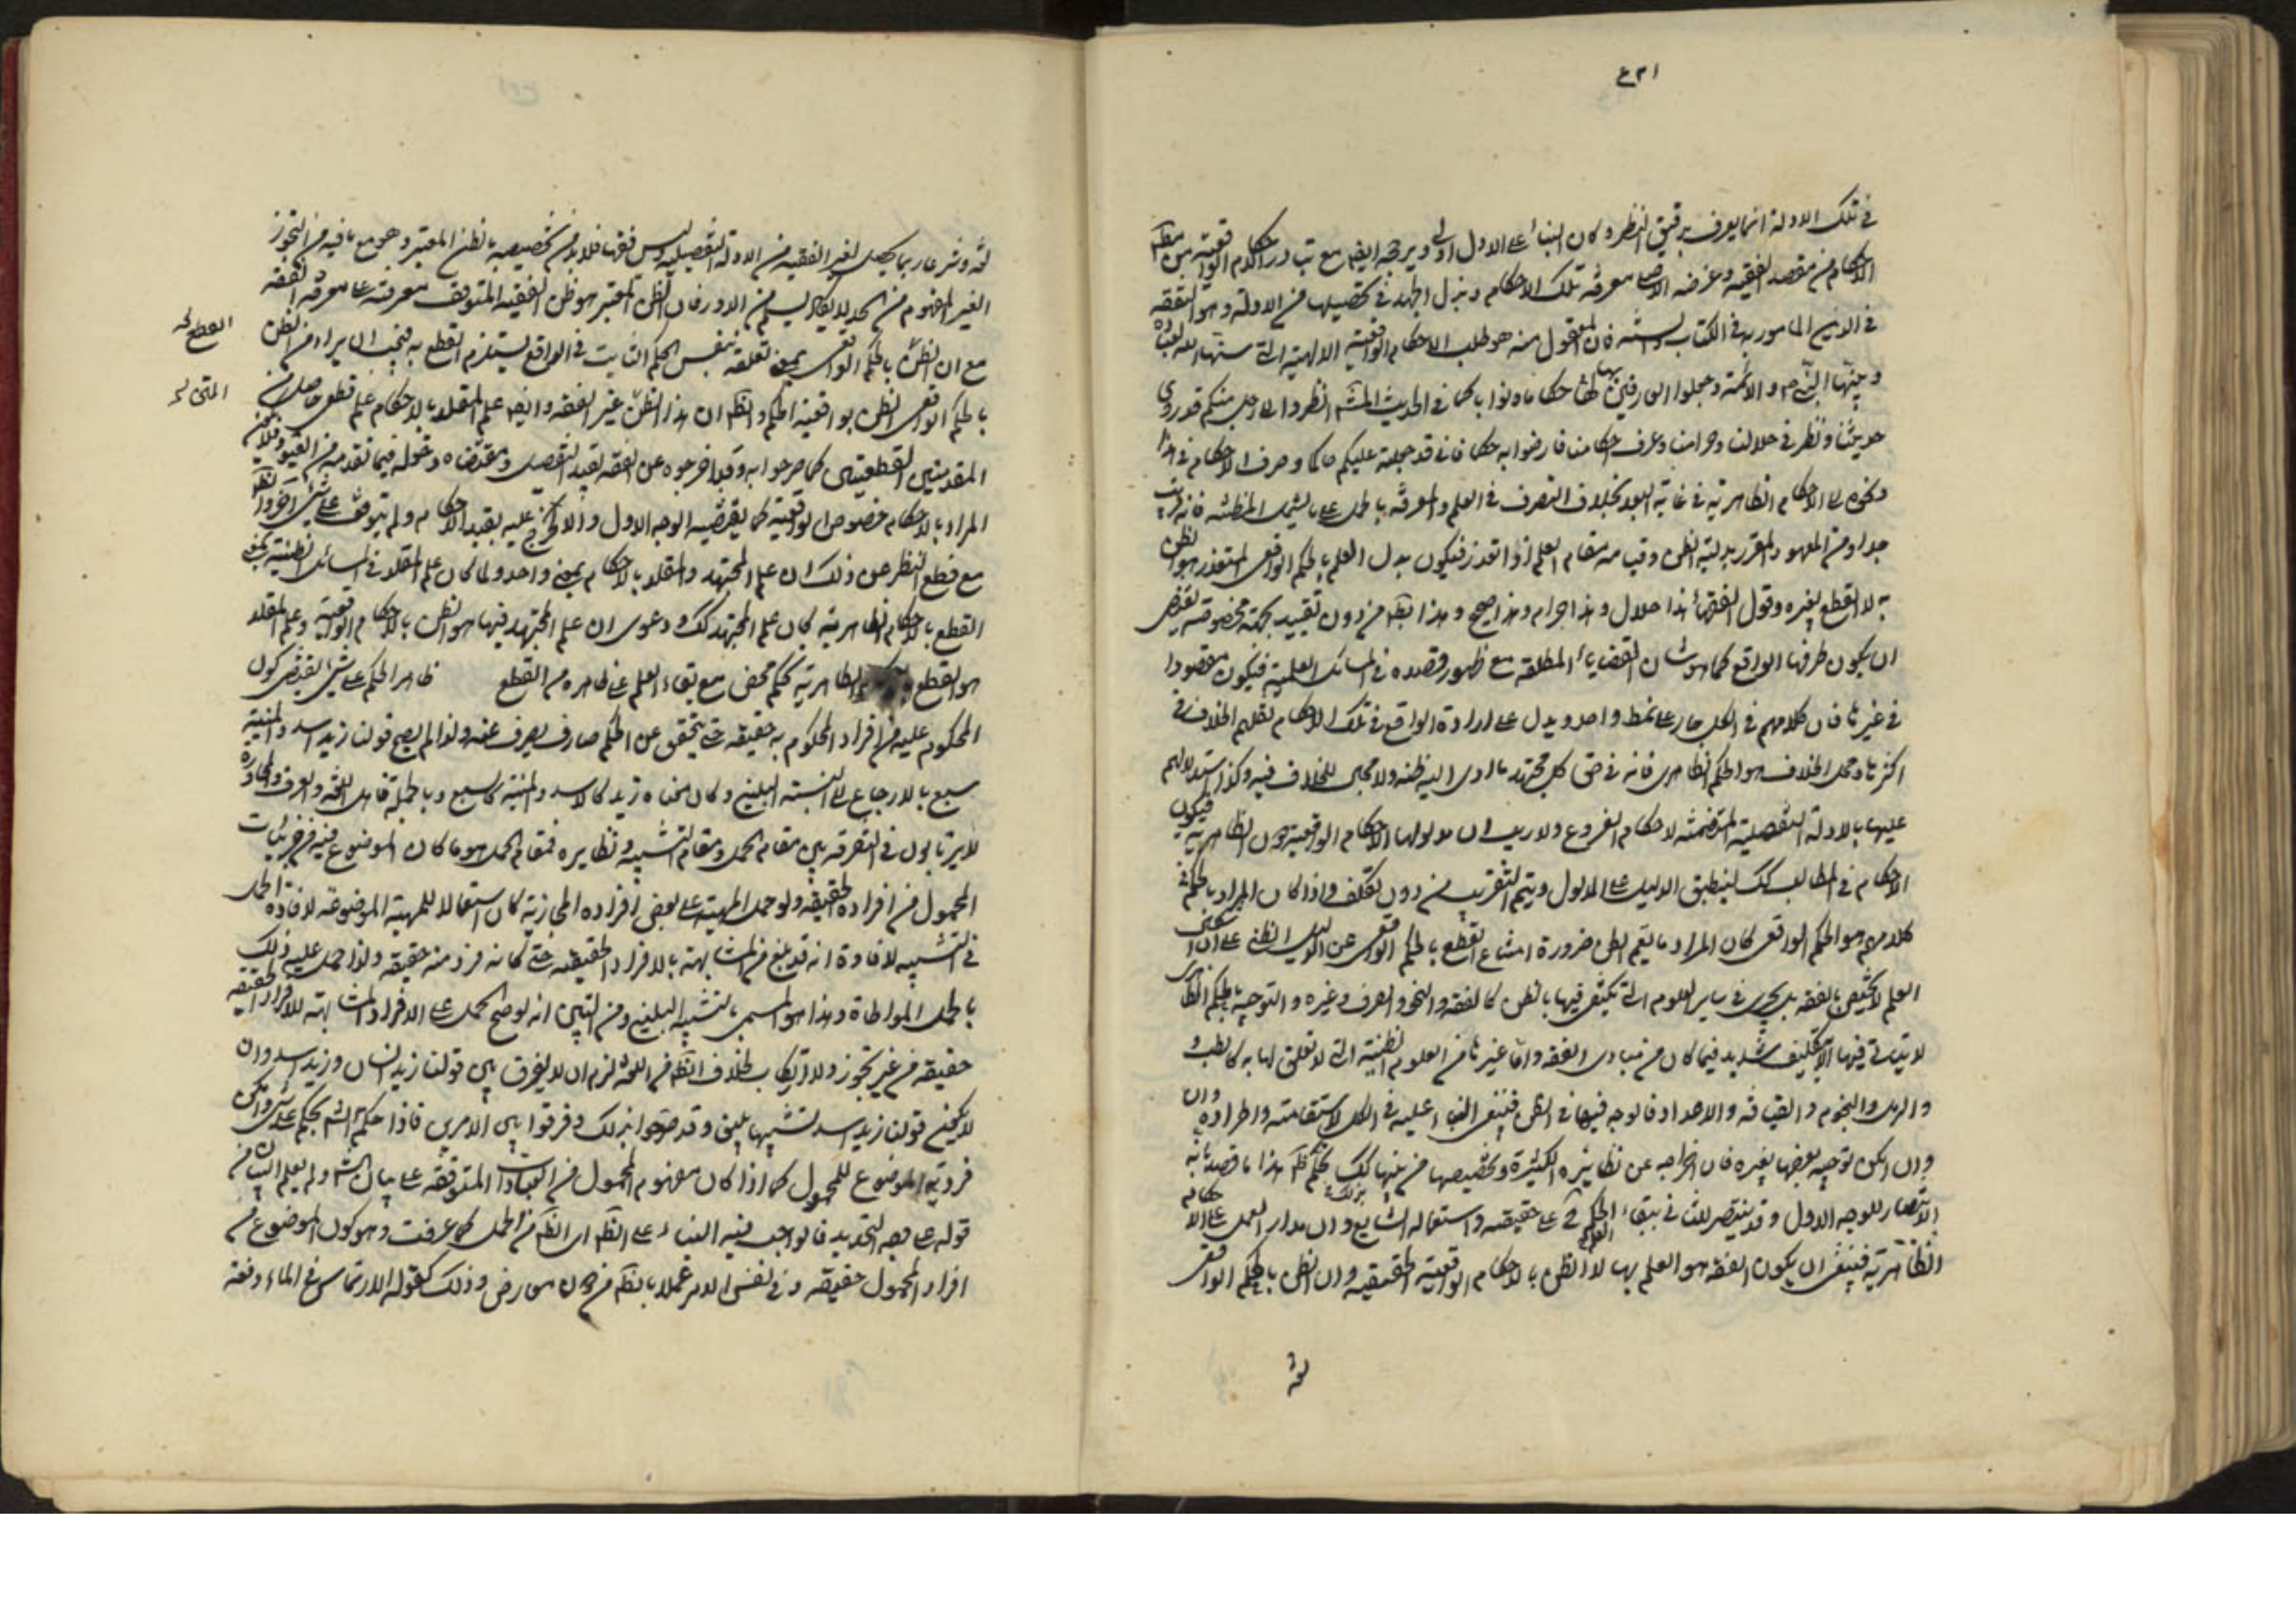 في تلك الادلة انما يعرف بدقيق النظر وكان البناء على الاول اولى ويرجحه ايضا مع تبادر الاحكام الواقعية من مطلق
الاحكام من مقصد الفقيه وغرضه الاصلى معرفة تلك الاحكام وبذل الجهد في تحصيلها من الادلة وهو التفقه
في الدين المامور به في الكتاب والسنة فان المعقول منه هو طلب الاحكام الواقعية الالهية التي سنها الله لعباده
وبينها النبي ص والائمة وجعلوا العارفين بها حكاما ونوابا كما في الحديث المشهور انظروا الى رجل منكم قد روى
حديثنا ونظر في حلالنا وحرامنا وعرف احكامنا فارضوا به حكما فاني قد جعلته عليكم حاكما وصرف الاحكام في هذا
ونحوه الى الاحكام الظاهرية في غاية البعد بخلاف التصرف في العلم والمعرفة بالحمل على ما يشمل المظنة فانه قريب
جدا ومن المعهود المقرر بدلية الظن وقيامه مقام العلم اذا تعذر فيكون بدل العلم بالحكم الواقعى المتعذر هو الظن
به لا القطع بغيره وقول الفقهاء هذا حلال وهذا حرام وهذا صحيح وهذا بط من دون تقييد بجهة مخصوصة يقتضى
ان يكون ظرفها الواقع كما هو شان القضايا المطلقة مع ظهور قصده في المسائل العلمية فيكون مقصودا
في غيرها فان كلامهم في الكل جار على نمط واحد ويدل على ارادة الواقع في تلك الاحكام نقلهم الخلاف في
اكثرها ومحل الخلاف هو الحكم الظاهرى فانه في حق كل مجتهد ما ادى اليه ظنه ولا مجال للخلاف فيه وكذا استدلالهم
عليها بالادلة التفصيلية المتضمنة لاحكام الفروع ولا ريب ان مدلولها الاحكام الواقعية دون الظاهرية فيكون
الاحكام في المطالب كك لينطبق الدليل على المدلول ويتم التقريب من دون تكلف واذا كان المراد بالحكم في
كلامهم هو الحكم الواقعى كان المراد ما يعم الظن ضرورة امتناع القطع بالحكم الواقعى عن الدليل الظنى على ان استعمال
العلم لا يختص بالفقه بل يجرى في ساير العلوم التي يكتفى فيها بالظن كالفقه والنحو والصرف وغيره والتوجيه بالحكم الظاهرى
لا يتاتى فيها الا بتكليف شديد فيما كان من مبادى الفقه واما غيرها من العلوم الظنية التي لا تعلق لها به كالطب و
والرمل والنجوم والقيافة والاعداد فالوجه فيها هو الظن فينبغى البناء عليه في الكل لاستقامته واطراده وان
وان امكن توجيه بعضها بغيره فان اخراجه عن نظائره الكثيرة وتخصيصها من بينها بذلك تحكم ظ هذا ما قصدنا به
الانتصار للوجه الاول وقد ينتصر للثانى ببقاء العلم في على حقيقته واستعماله الشايع وان مدار العمل على الاحكام
الظاهرية فينبغى ان يكون الفقه هو العلم بها لا الظن بالاحكام الواقعية الحقيقية وان الظن بالحكم الواقعى
لغة وشرعا ربما يحصل لغير الفقيه من الادلة التفصيلية وليس فقها فلا بد من تخصيصه بالظن المعتبر وهو مع ما فيه من التجوز
الغير المفهوم من الحد لا يكاد يسلم من الدور فان الظن المعتبر هو ظن الفقيه المتوقف معرفته على معرفة الفقه
مع ان الظن بالحكم الواقعى بمعنى تعلقه بنفس الحكم الثابت في الواقع يستلزم القطع به فيجب ان يراد من الظن
بالحكم الواقعى الظن بواقعية الحكم والظ ان هذا الظن غير الفقه وايضا علم المقلد بالاحكام علم قطعى حاصل من
المقدمتين القطعيتين كما صرحوا به وقد اخرجوه عن الفقه بقيد التفصيل ومقتضاه دخوله فيما تقدمه من القيود فلا يكون
المراد بالاحكام خصوص الواقعية كما يقتضيه الوجه الاول والا لخرج عليه بقيد الاحكام ولم يتوقف على شئ آخر والظ
مع قطع النظر عن ذلك ان علم المجتهد والمقلد بالاحكام بمعنى واحد ولما كان علم المقلد في المسائل الظنية بمعنى
القطع بالاحكام الظاهرية كان علم المجتهد كك ودعوى ان علم المجتهد فيها هو الظن بالاحكام الواقعية وعلم المقلد
هو القطع الظاهرية تحكم محض مع بقاء العلم على ظاهره من القطع ظاهر الحكم على شئ يقتضى كون
المحكوم عليه من افراد المحكوم به حقيقة حتى يتحقق عن الحكم صارف يصرف عنه ولذا لم يصح قولنا زيد اسد والمنية
سبع بالارجاع الى التشبيه البليغ وكان معناه زيد كالاسد والمنية كالسبع وبالجملة فاهل اللغة والعرف والمحاورة
لا يرتابون في التفرقة بين مقام الحمل ومقام التشبيه ونظايره فمقام الحمل هو ما كان الموضوع فيه من جزئيات
المحمول من افراده الحقيقية ولو حمل المهية على بعض افراده المجازية كان استعمالا للمهية الموضوعة لافادة الحمل
في التشبيه لافادة انه قد بلغ من المشابهة بالافراد الحقيقية حتى كانه فرد منه حقيقة ولذا حمل عليه ذلك
بالحمل المواطاة وهذا هو المسمى بالتشبيه البليغ ومن البين انه لو صح الحمل على الافراد المشابهة للافراد الحقيقية
حقيقة من غير تجوز ولا ارتكاب لخلاف الظ من اللغة لزم ان لا يفرق بين قولنا زيد انسان وزيد اسد وان
لا يكون قولنا زيد اسد تشبيها بليغا وقد صرحوا بذلك وفرقوا بين الامرين فاذا حكم الشارع بحكم على شئ وامكن
فردية الموضوع للمحمول كما اذا كان مفهوم المحمول من العبادات المتوقفة على بيان الشارع ولم يعلم البيان من
قوله على وجه التحديد فالواجب فيه البناء على الظ اى الظ من الحمل كما عرفت وهو كون الموضوع من
افراد المحمول حقيقة وفي نفس الامر عملا بالظ من دون معارض وذلك كقوله الارتماس في الماء دفعة